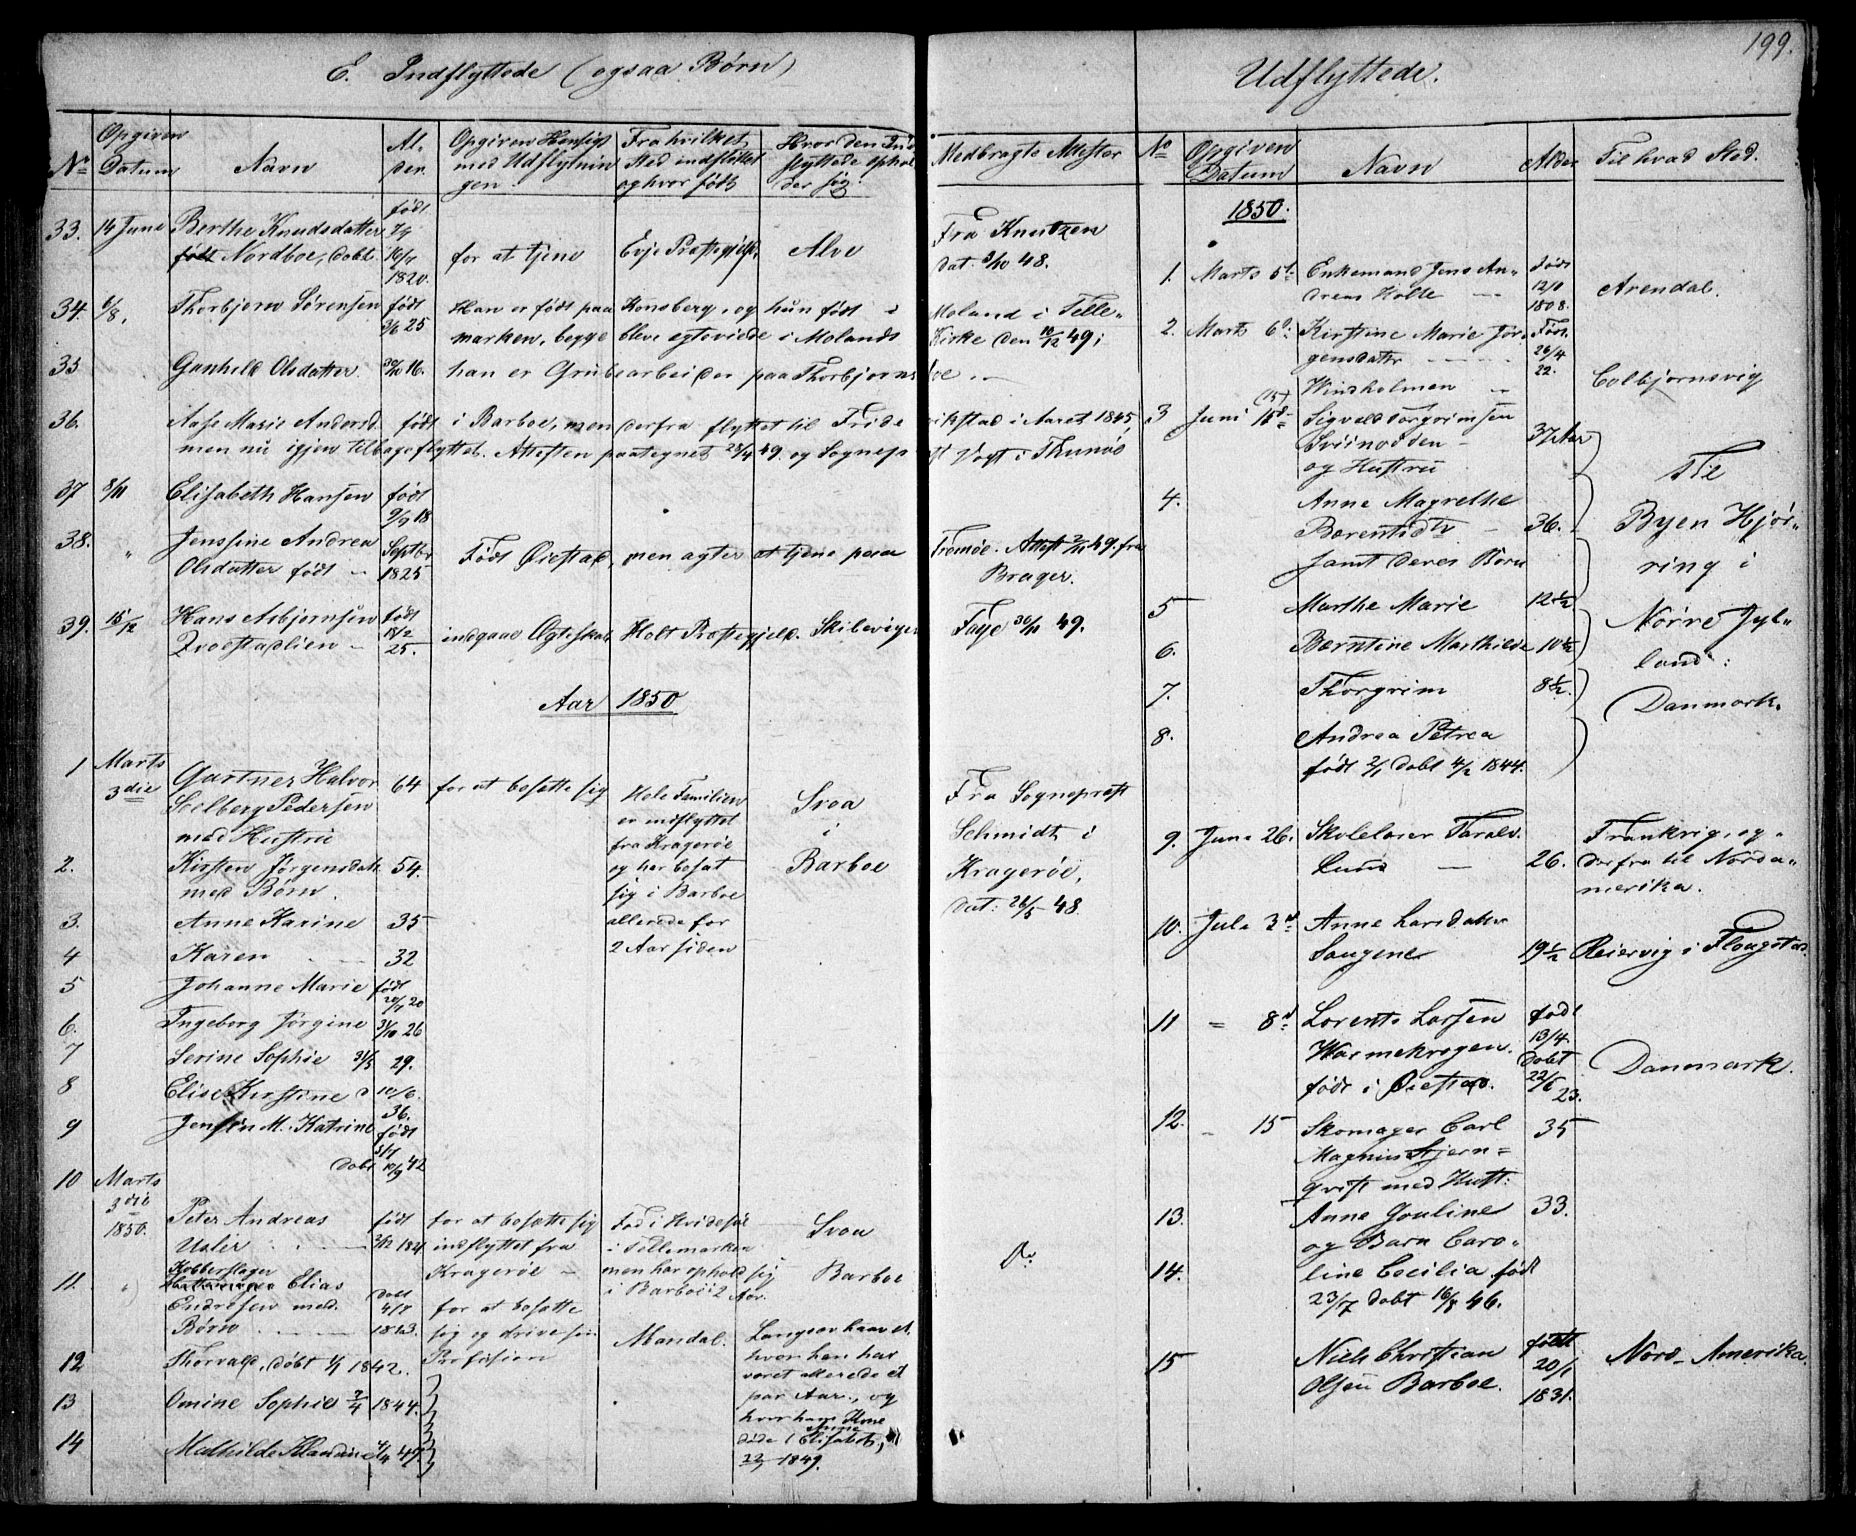 199.
E. Indflyttede (ogsaa Børn)
No Opgiven Datum Navn Alder Opgiven Hensigt med Udflytningen Fra hvilket Sted indflyttet og hvor født Hvor den Indflyttede opholder sig Medbragte Attester
33. 14 June Berthe Knudsdatter født
født Nordboe, dobt 16/7 1820. for at tjene Evje Præstegjeld, Alve Fra Knutzen
dat. 3/10 48.
34. 6/8, Thorbjørn Sørensen født 25 Han er født paa Konsberg, og hun født i Moland i Telle-
marken, begge bleve egteviede i Molands Kirke den 10/12 49;
35 Gunhild Olsdatter 16. han er Grubearbeider paa Thorbjørns
36. Aase Marie Andersd. født i Barboe, men derfra flyttet til Friderikstad i Aaret 1845,
men nu igjen tilbageflyttet. Attesten paategnet 28/4 49. og Sognep Vogt i Thunøs
37 8/11 Elisabeth Hansen født
9/9 18
38. " Jenssine Andrea Septbr
Olsdatter født - 1825 Født Øiestad, men agter at tjene paa Tromøe. Attest 2/11 49. fra
Brager.
39. 15/12 Hans Asbjørnsen født
18/2
25. indgaae Ægteskab Holt Præstegjeld. Skilevigen Faye 30/11 49.
Aar 1850
1 Marts
3die Gartner Halvor 64 for at bosætte sig Hele Familien Svoa Fra Sognepræst
Solberg Pedersen er indflyttet i Schmidt i
med Hustru fra Kragerøe Barboe Kragerøe,
2. Kirsten Jørgensdatt 54. og har bosat dat: 26/5 48.
med Børn. sig i Barboe
3. Anne Karine 35 allerede for
4 Karen 32 2 Aar siden
5 Johanne Marie født
20/7 20
6. Ingeborg Jørgine 31/10 26
7 Serine Sophie 31/3 29.
8 Elise Kirstine 10/6.
36.
9 M. Katrine født
dobt 10/9 42
10 Marts
3die
1850. Peter Andreas født for at bosætte sig Fød i Hvidesøe Svoa
Usler 2/12 1821 indflyttet fra i Tellemarken
Kragerøe - men har ophold sig Barboe Do
i Barboe i 2 Aar.
11. " Kobberslager
Elias dobt
Endresen med 4/7 for at bosætte
Børn 1823. sig og drive sin Mandal. Langsæe haavet
12 Thorvald, døbt 1/1 1842. Profession hvor han har
været allerede et
13 Omine Sophie 7/4 1844. par Aar, og
hvor hans Kone
Anne
14 Mathilde Klaudine 4/4 47. døde Elisabet,
1849.
Udflyttede.
No Opgiven Datum Navn Alder Til hvad Sted.
1850.
1. Marts 5t: Enkemand Jens An- født
dreas Holte 12/8
1808. Arendal.
2. Marts 6t: Kirstine Marie Jør- Født
gensdattr 26/4
22.
Windholmen Colbjørnsvig
3 Juni 15d Sigvald Torgrimsen
Sviinodden - 37 Aar
og Hustru Til
4. Anne Magrethe
Berentsdtr - 36. Byen Hjør-
samt deres Børn ring i
5 Marthe Marie 12½ Nørre Jyl-
6. Berntine Marthilde 10½ land:
7. Thorgrim 8½. Danmark.
8. Andrea Petrea
født 2/1 dobt 4/2 1844.
9. June 26. Skolelærer Taralv. Frankrig, og
Lund 26. derfra til Norda-
merika.
10. Jula 3d Anne Larsdatter
Songene 19½ Reiervig i Flougstad
11 = 8d Lorents Larsen født
13/4
Warmekrogen. dobt
født i Øiestad. 22/6
23. Danmark.
12. - 15 Skomager Carl 35
Magnus Stjern=
qvist med Hust:
13. Anne Gouline 33.
og Barn Caro-
14. line Cecilia født
23/7 dobt 16/8 46.
15 Niels Christian født
Olsen Barboe. 20/1
1831. Nord-Amerika